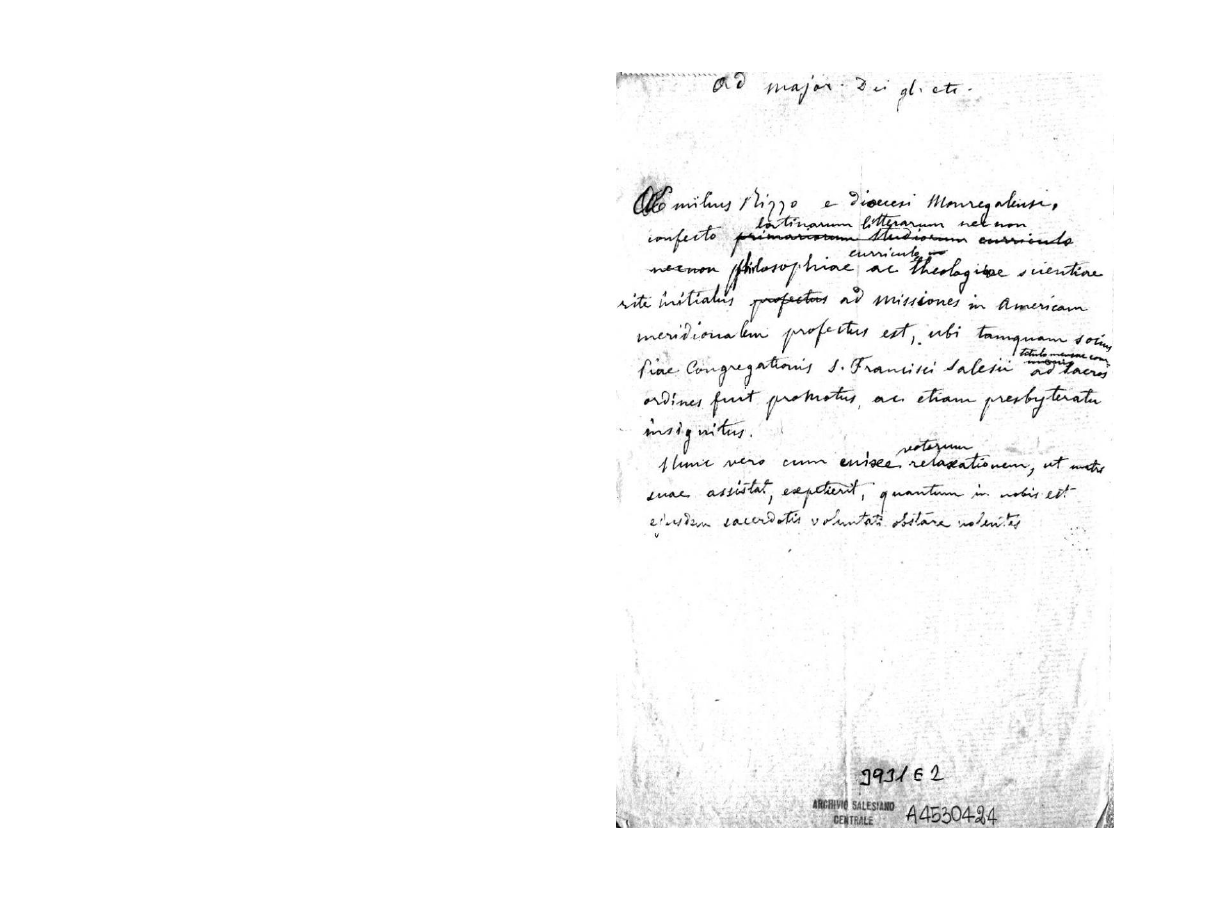 Ad major. Dei gl. etc.
Aemilius Rizzo e dioecesi Monregalensi,
latinarum litterarum nec non
confecto primariorum studiorum curriculo
curriculo
necnon philosophiae ac theologiae scientiae
rite initiatus profectus ad missiones in Americam
meridionalem profectus est, ubi tamquam socius
titulo mensae com
munis
Piae Congregationis S. Francisci Salesii ad sacros
ordines fuit promotus, ac etiam presbyteratu
insignitus.
votorum
Nunc vero cum enixe relaxationem, ut matri
suae assistat, expetierit, quantum in nobis est
ejusdem sacerdotis voluntati obstare nolentes
993 / E 2
ARCHIVIO SALESIANO
CENTRALE
A4530424